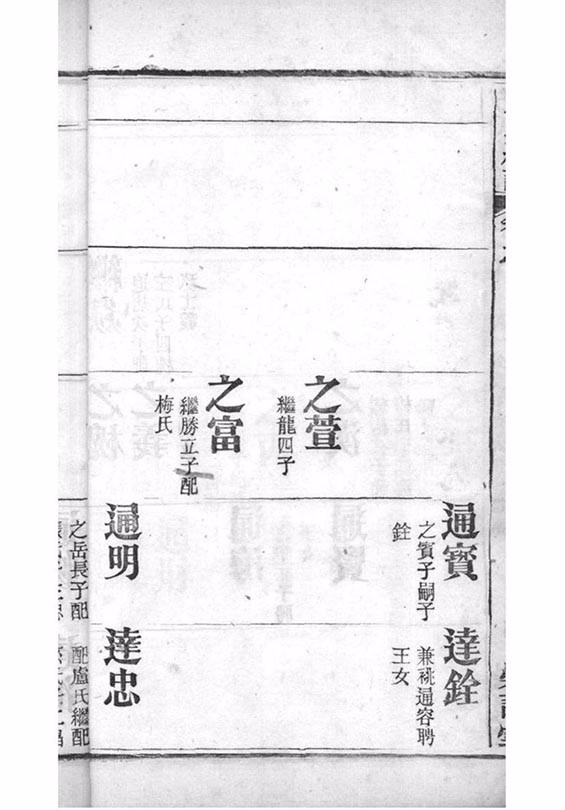 通賓
之賓子嗣子
銓
達銓
兼祧通容聘
王女
之萱
繼龍四子
之富
繼勝立子配
梅氏
通明
達忠
之岳長子配
配盧氏繼配